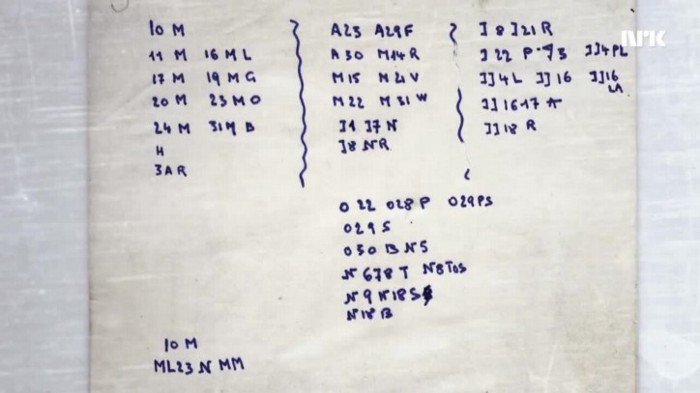 nrk
10 M
11 M 16 M L
17 M 19 M G
20 M 23 M O
24 M 31 M B
H
3 A R
A23 A29F
A 30 M14 R
M15 M21 V
M22 M 31 W
J1 J7 N
J8 N R
J 8 J21 R
J 22 P JJ4 PL
JJ4 L JJ 16 JJ16 LA
JJ 16 17 A
JJ 18 R
O 22 O28 P O29 PS
O29 S
O30 B N5
N 678 T N8 TOS
N 9 N18 S
N18 B
10 M
ML23 N MM